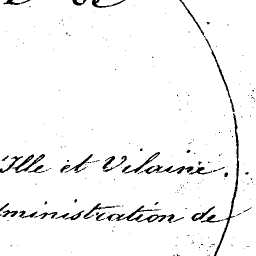 'Ille et Vilaine.
ministration de